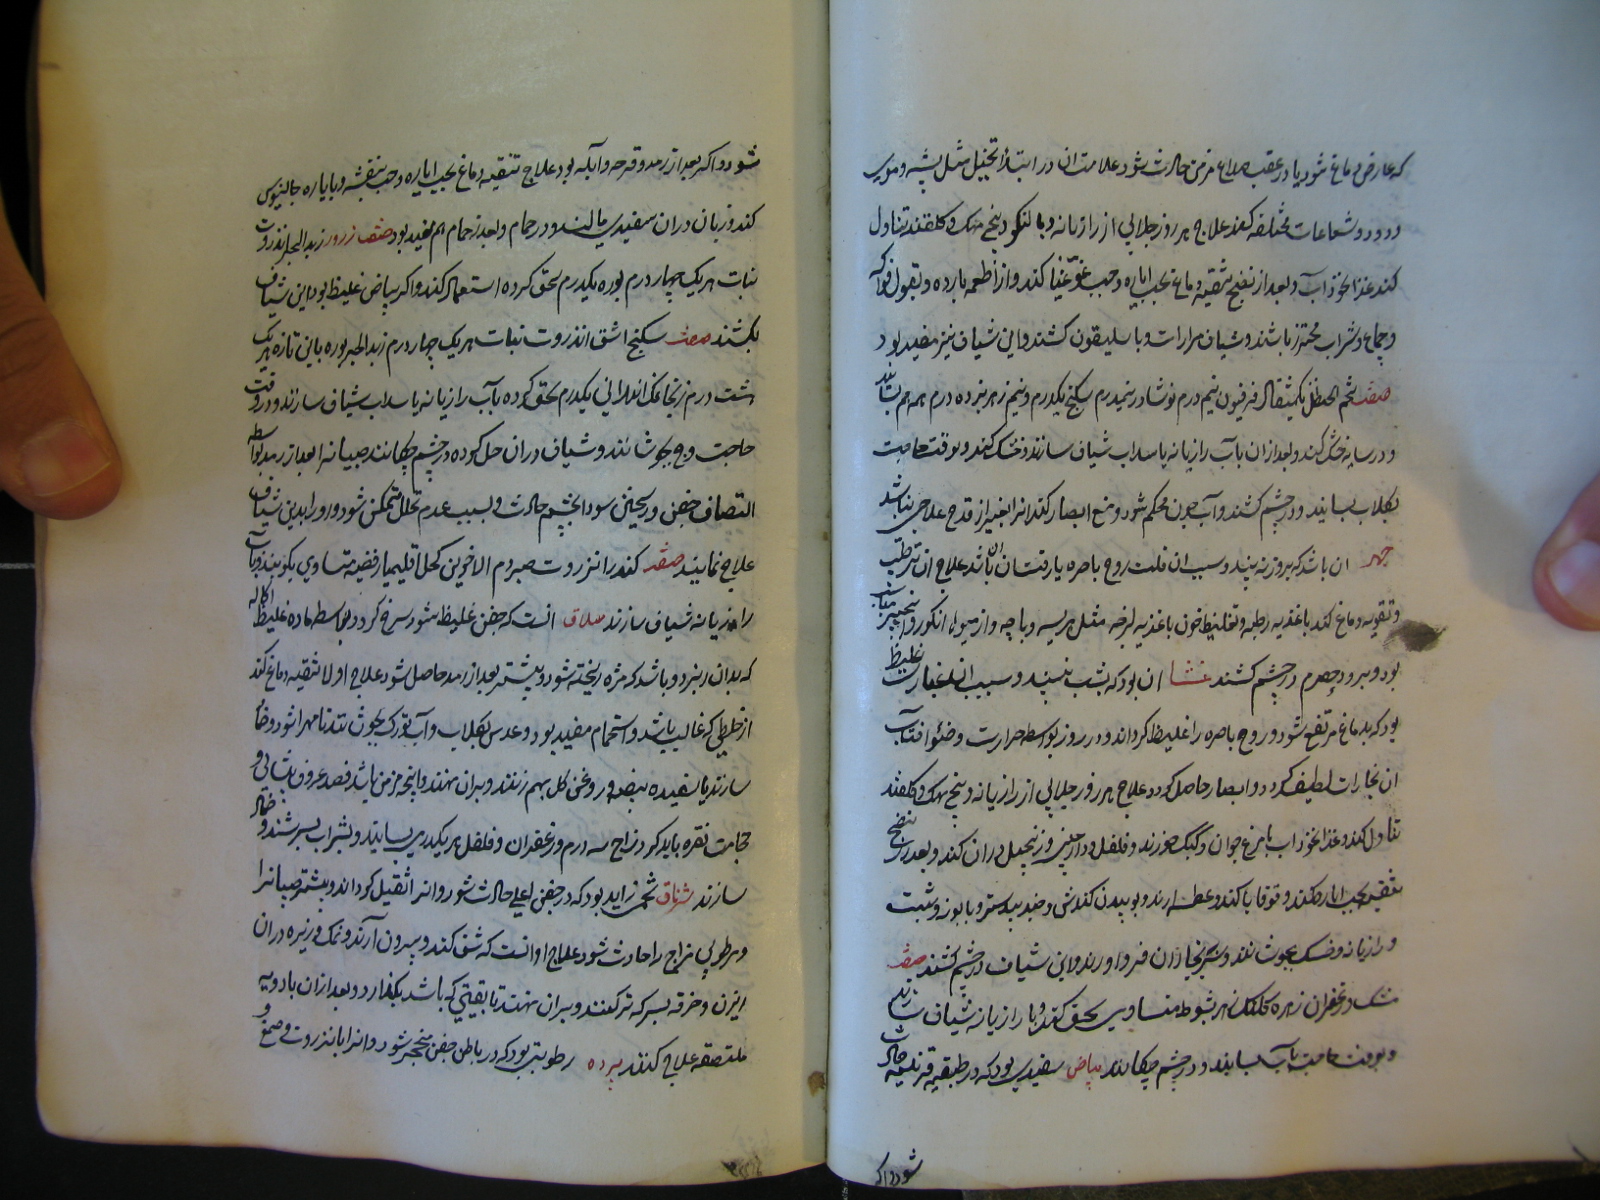 که عارض دماغ شود یا در عقب صداع مزمن حادث شود علامت ان در ابتدا تخیل مثل پشه و موی
و دود و شعاعات مختلفه کند علاج هر روز جلابی از رازیانه و بالنکو و بیخ مهک و کلقند تناول
کند غذا نخوداب و بعد از نضج تنقیه دماغ بحب ایاره و حب کند و از اطعمه بارده و بقول و فواکه
و جماع و شراب محترز باشند و شیاف مرارات و باسلیقون کشند و این شیاف نیز مفید بود
صفت شحم الحنظل یکمثقال فرفیون نیم درم نوشادر نیمدرم سکبنج یکدرم و نیم زهر بز ده درم همه بهم بسایند
و در سایه خشک کند و بعد از ان باب رازیانه یا سداب شیاف سازند و خشک کند و بوقت حاجت
بکلاب بسایند و در چشم کشند و آب چون محکم شود و منع ابصار کند انرا بغیر از قدح علاجی نباشد
جهر ان باشد که بروز نه بیند و سبب ان قلت روح باصره یا رقت ان باشد علاج ان ترطیب
و تقویه دماغ کند باغذیه رطبه و تغلیظ خون باغذیه لزجه مثل هریسه و پاچه و از میوها انکور و انجیر
بود و برود حصرم در چشم کشند عشا ان بود که بشب نه بیند و سبب ان بخارات غلیظ
بود که بدماغ مرتفع شود و روح باصره را غلیظ کرداند و در روز بواسطه حرارت و ضوء افتاب
ان بخارات لطیف کردد و ابصار حاصل کردد علاج هر روز جلابی از رازیانه و بیخ مهک و کلقند
تناول کند و غذا نخوداب با مرغ جوان و کبک خورند و فلفل و دارچینی و زنجبیل دران کند و بعد نضج
تنقیه بحب ایاره کند و قوقایا کند و عطسه ارند و بوییدن کندش و جندبیدستر و بابونه و شبت
و رازیانه بجوشانند و سر بخار ان فرو اورند و این شیاف در چشم کشند صفت
مشک و زعفران زهره کلنک زهر شبوط متساوی سحق کند و با رازیانه شیاف سازند
و بوقت حاجت باب بسایند و در چشم چکانند بیاض سفیدی بود که در طبقه قرنیه حادث
شود و اکر
شود و اکر بعد از رمد و قرحه و آبله بود علاج تنقیه دماغ بحب ایاره و حب بنفشه و یا یاره جالینوس
کند و زبان دران سفیدی مالند و در حمام و بعد از حمام هم مفید بود صفت زرور زبد البحر انزروت
نبات هر یک چهار درم بوره یکدرم سحق کرده استعمال کند و اکر بیاض غلیظ بود این شیاف
بکشند صفت سکبنج اشق انزروت نبات هر یک چهار درم زبد البحر بوره هر یک
هشت درم زنجار نمک اندرانی یکدرم سحق کرده بآب رازیانه یا سداب شیاف سازند و در وقت
حاجت وج بجوشانند و شیاف دران حل کرده در چشم چکانند صبیانه را بعد از رمد بواسطه
التصاق جفن و ریختن سودا بچشم حادث و بسبب عدم تحلل متمکن شود و او را بدین شیاف
علاج نمایند صفت کندر انزروت صبر دم الاخوین کحل اقلیمیا از فضه متساوی بکوبند و بآب
رازیانه شیاف سازند سلاق انست که جفن غلیظ شود و سرخ کردد بواسطه ماده غلیظ اکاله
که بدان ریزد و باشد که مژه ریخته شود و بیشتر بعد از رمد حاصل شود علاج اولا تنقیه دماغ کند
از خلطی که غالب باشد و استحمام مفید بود و عدس بکلاب و آب تورک بجوشانند تا مهرا شود و ضماد
سازند یا سفیده بیضه و روغن کل بهم زنند و بران نهند و انچه مزمن باشد فصد عروق پیشانی و
حجامت نقره باید کرد زاج سه درم و زعفران و فلفل هر یکدرمی بسایند و بشراب بسرشند و ضماد
سازند شرناق شحمی زاید بود که در جفن اعلی حادث شود و انرا ثقیل کرداند و بیشتر صبیانرا
و مرطوبی مزاج را حادث شود علاج او انست که شق کند و بیرون آرند و نمک و زیره دران
ریزند و خرقه بسرکه تر کنند و بران نهند تا بقیتی که باشد بکذارد و بعد ازان بادویه
ملتصقه علاج کنند برده رطوبتی بود که در باطن جفن متحجر شود و انرا بانزروت و صمغ و